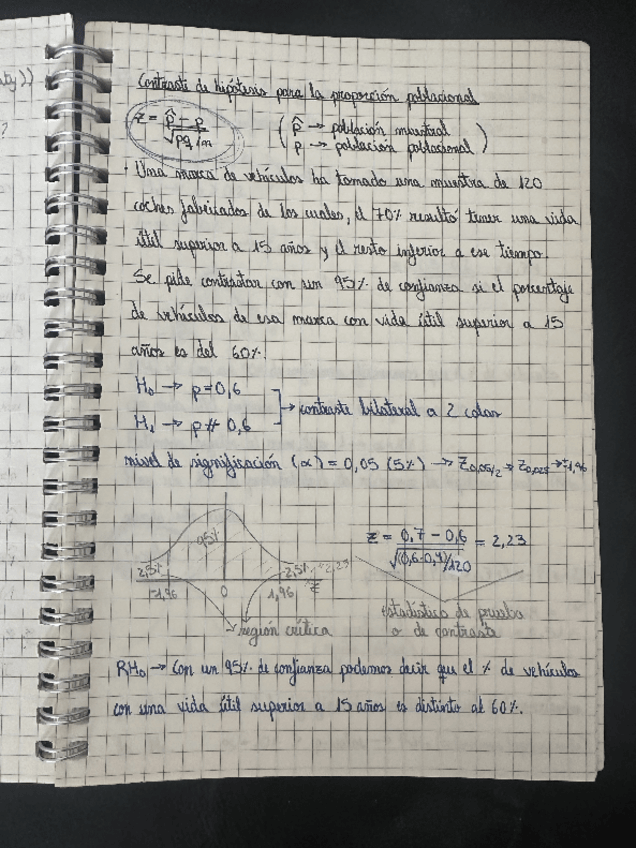 aty))
?
Contraste de hipótesis para la proporción poblacional
z = p̂ - p / √pq/n
( p̂ → población muestral
p → población poblacional )
Una marca de vehículos ha tomado una muestra de 120
coches fabricados de los cuales, el 70% resultó tener una vida
útil superior a 15 años y el resto inferior a ese tiempo.
Se pide contrastar con un 95% de confianza si el porcentaje
de vehículos de esa marca con vida útil superior a 15
años es del 60%.
H₀ → p = 0,6
H₁ → p ≠ 0,6
→ contraste bilateral a 2 colas
nivel de significación (α) = 0,05 (5%) → z0,05/2 → z0,025 → ±1,96
95%
z = 0,7 - 0,6 / √(0,6·0,4)/120 = 2,23
2,5% 2,5% 2,23
-1,96 0 1,96 z
→ región crítica
Estadístico de prueba
o de contraste
RH₀ → Con un 95% de confianza podemos decir que el % de vehículos
con una vida útil superior a 15 años es distinto al 60%.